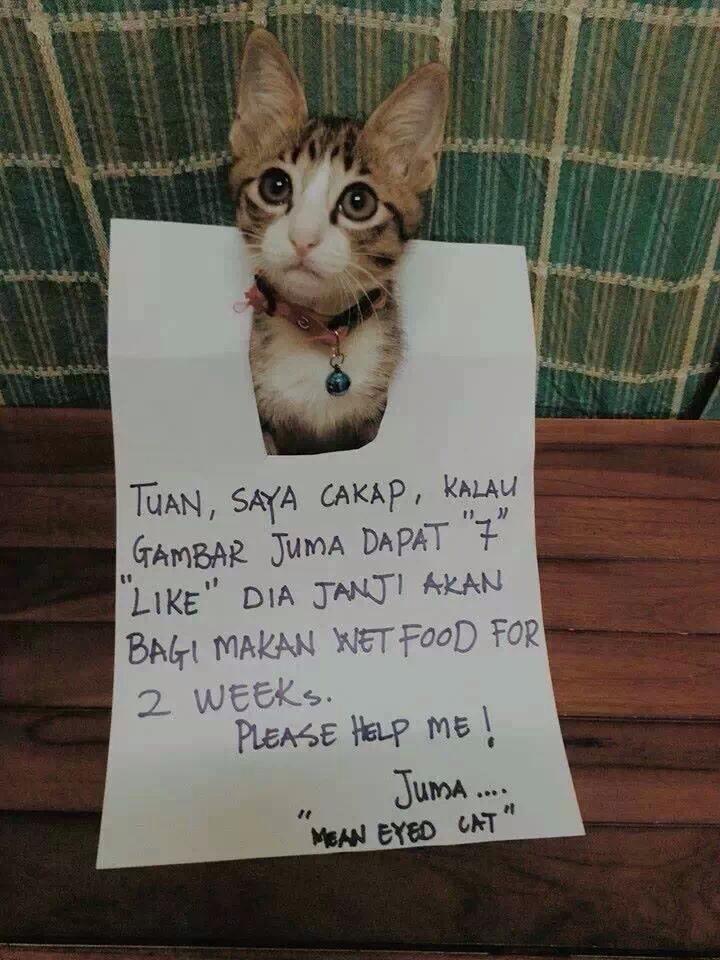 TUAN, SAYA CAKAP, KALAU
GAMBAR JUMA DAPAT "7"
"LIKE" DIA JANJI AKAN
BAGI MAKAN WET FOOD FOR
2 WEEKs.
PLEASE HELP ME!
JUMA ....
"MEAN EYED CAT"